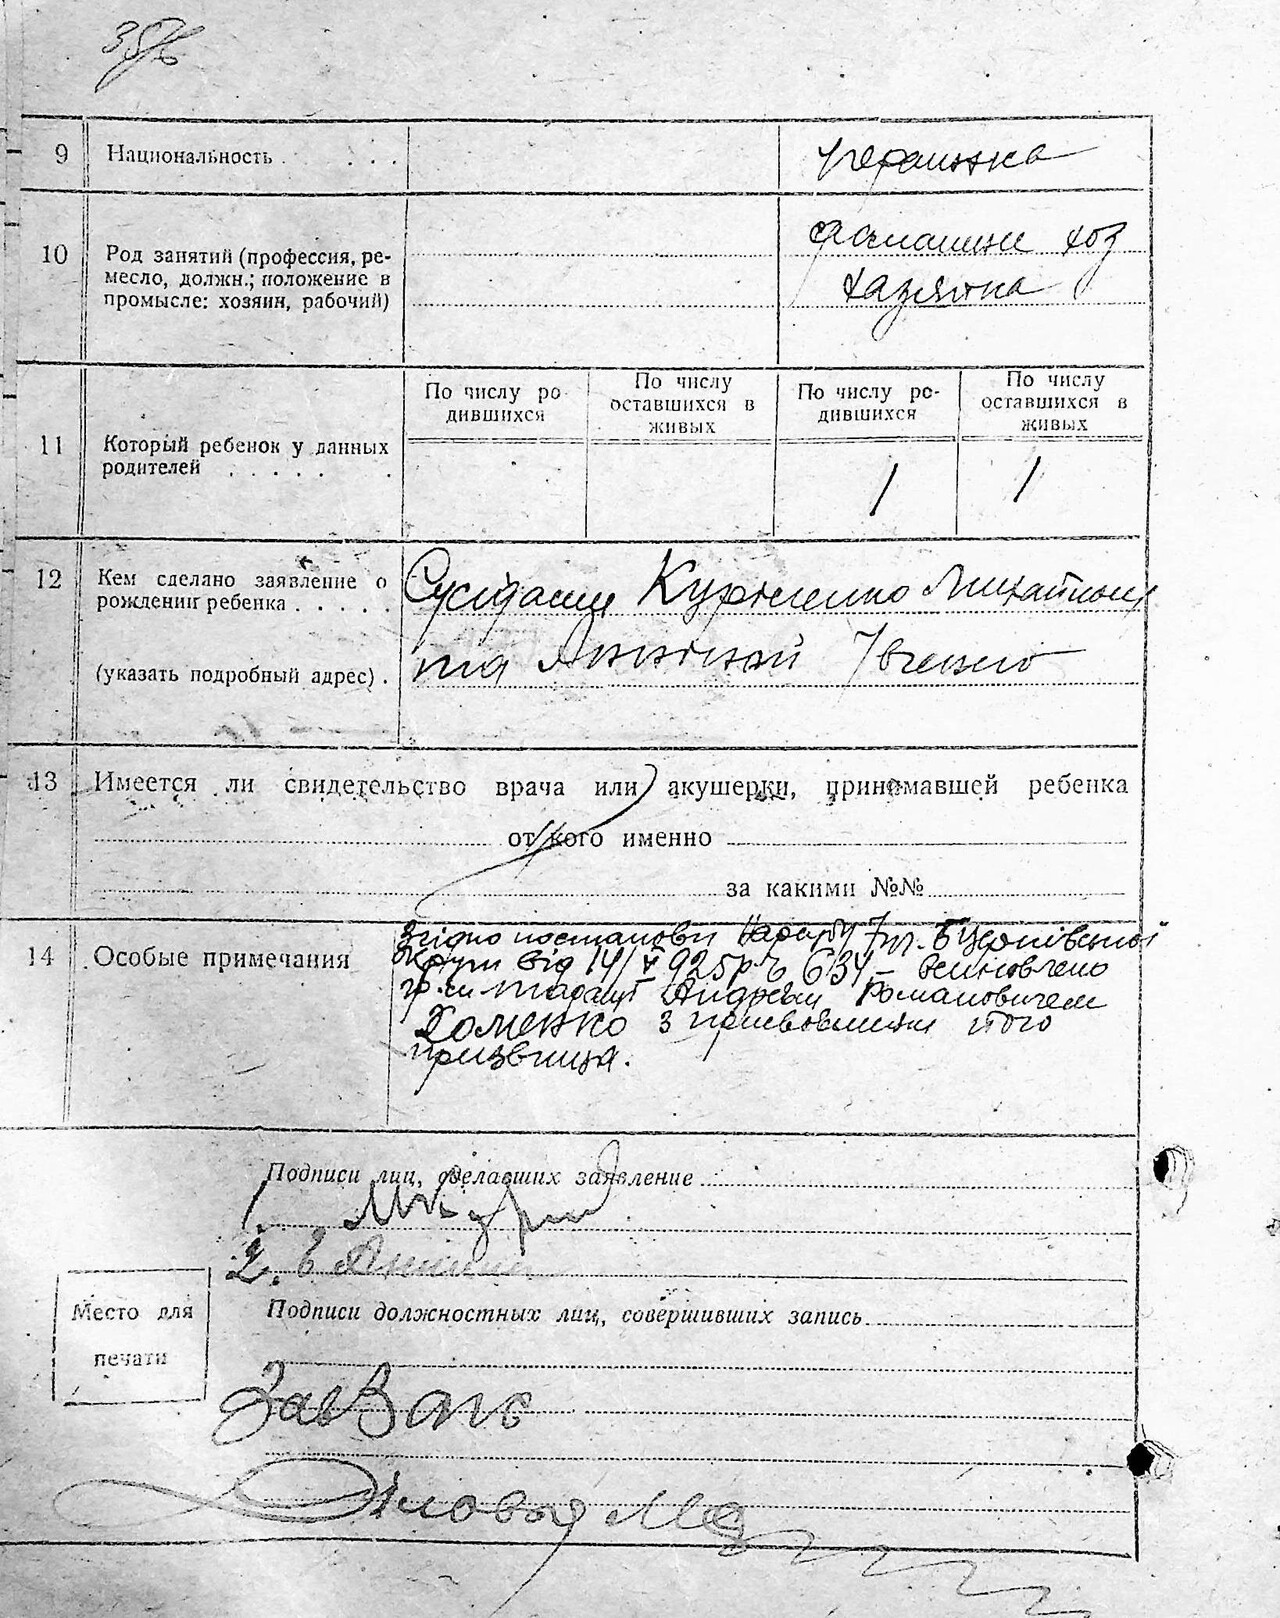 9 Национальность . . . . . українка
10 Род занятий (профессия, ре-
месло, должн.; положение в
промысле: хозяин, рабочий)
домашнє хоз
хазяйка
11 Который ребенок у данных
родителей . . . . . .
По числу ро-
дившихся
По числу
оставшихся в
живых
По числу ро-
дившихся
По числу
оставшихся в
живых
1 1
12 Кем сделано заявление о
рождении ребенка . . . . .
(указать подробный адрес) .
Сусідами
та
13 Имеется ли свидетельство врача или акушерки, принимавшей ребенка
от кого именно
за какими №№
14 Особые примечания
Згідно постанови Нарсуду 7
Округи від 14/V 925р. № 634 – всиновлено
Андрієм Романовичем
Хоменко з присвоєнням його
призвища.
Подписи лиц, сделавших заявление
1.
2.
Место для
печати
Подписи должностных лиц, совершивших запись
Зав Загс